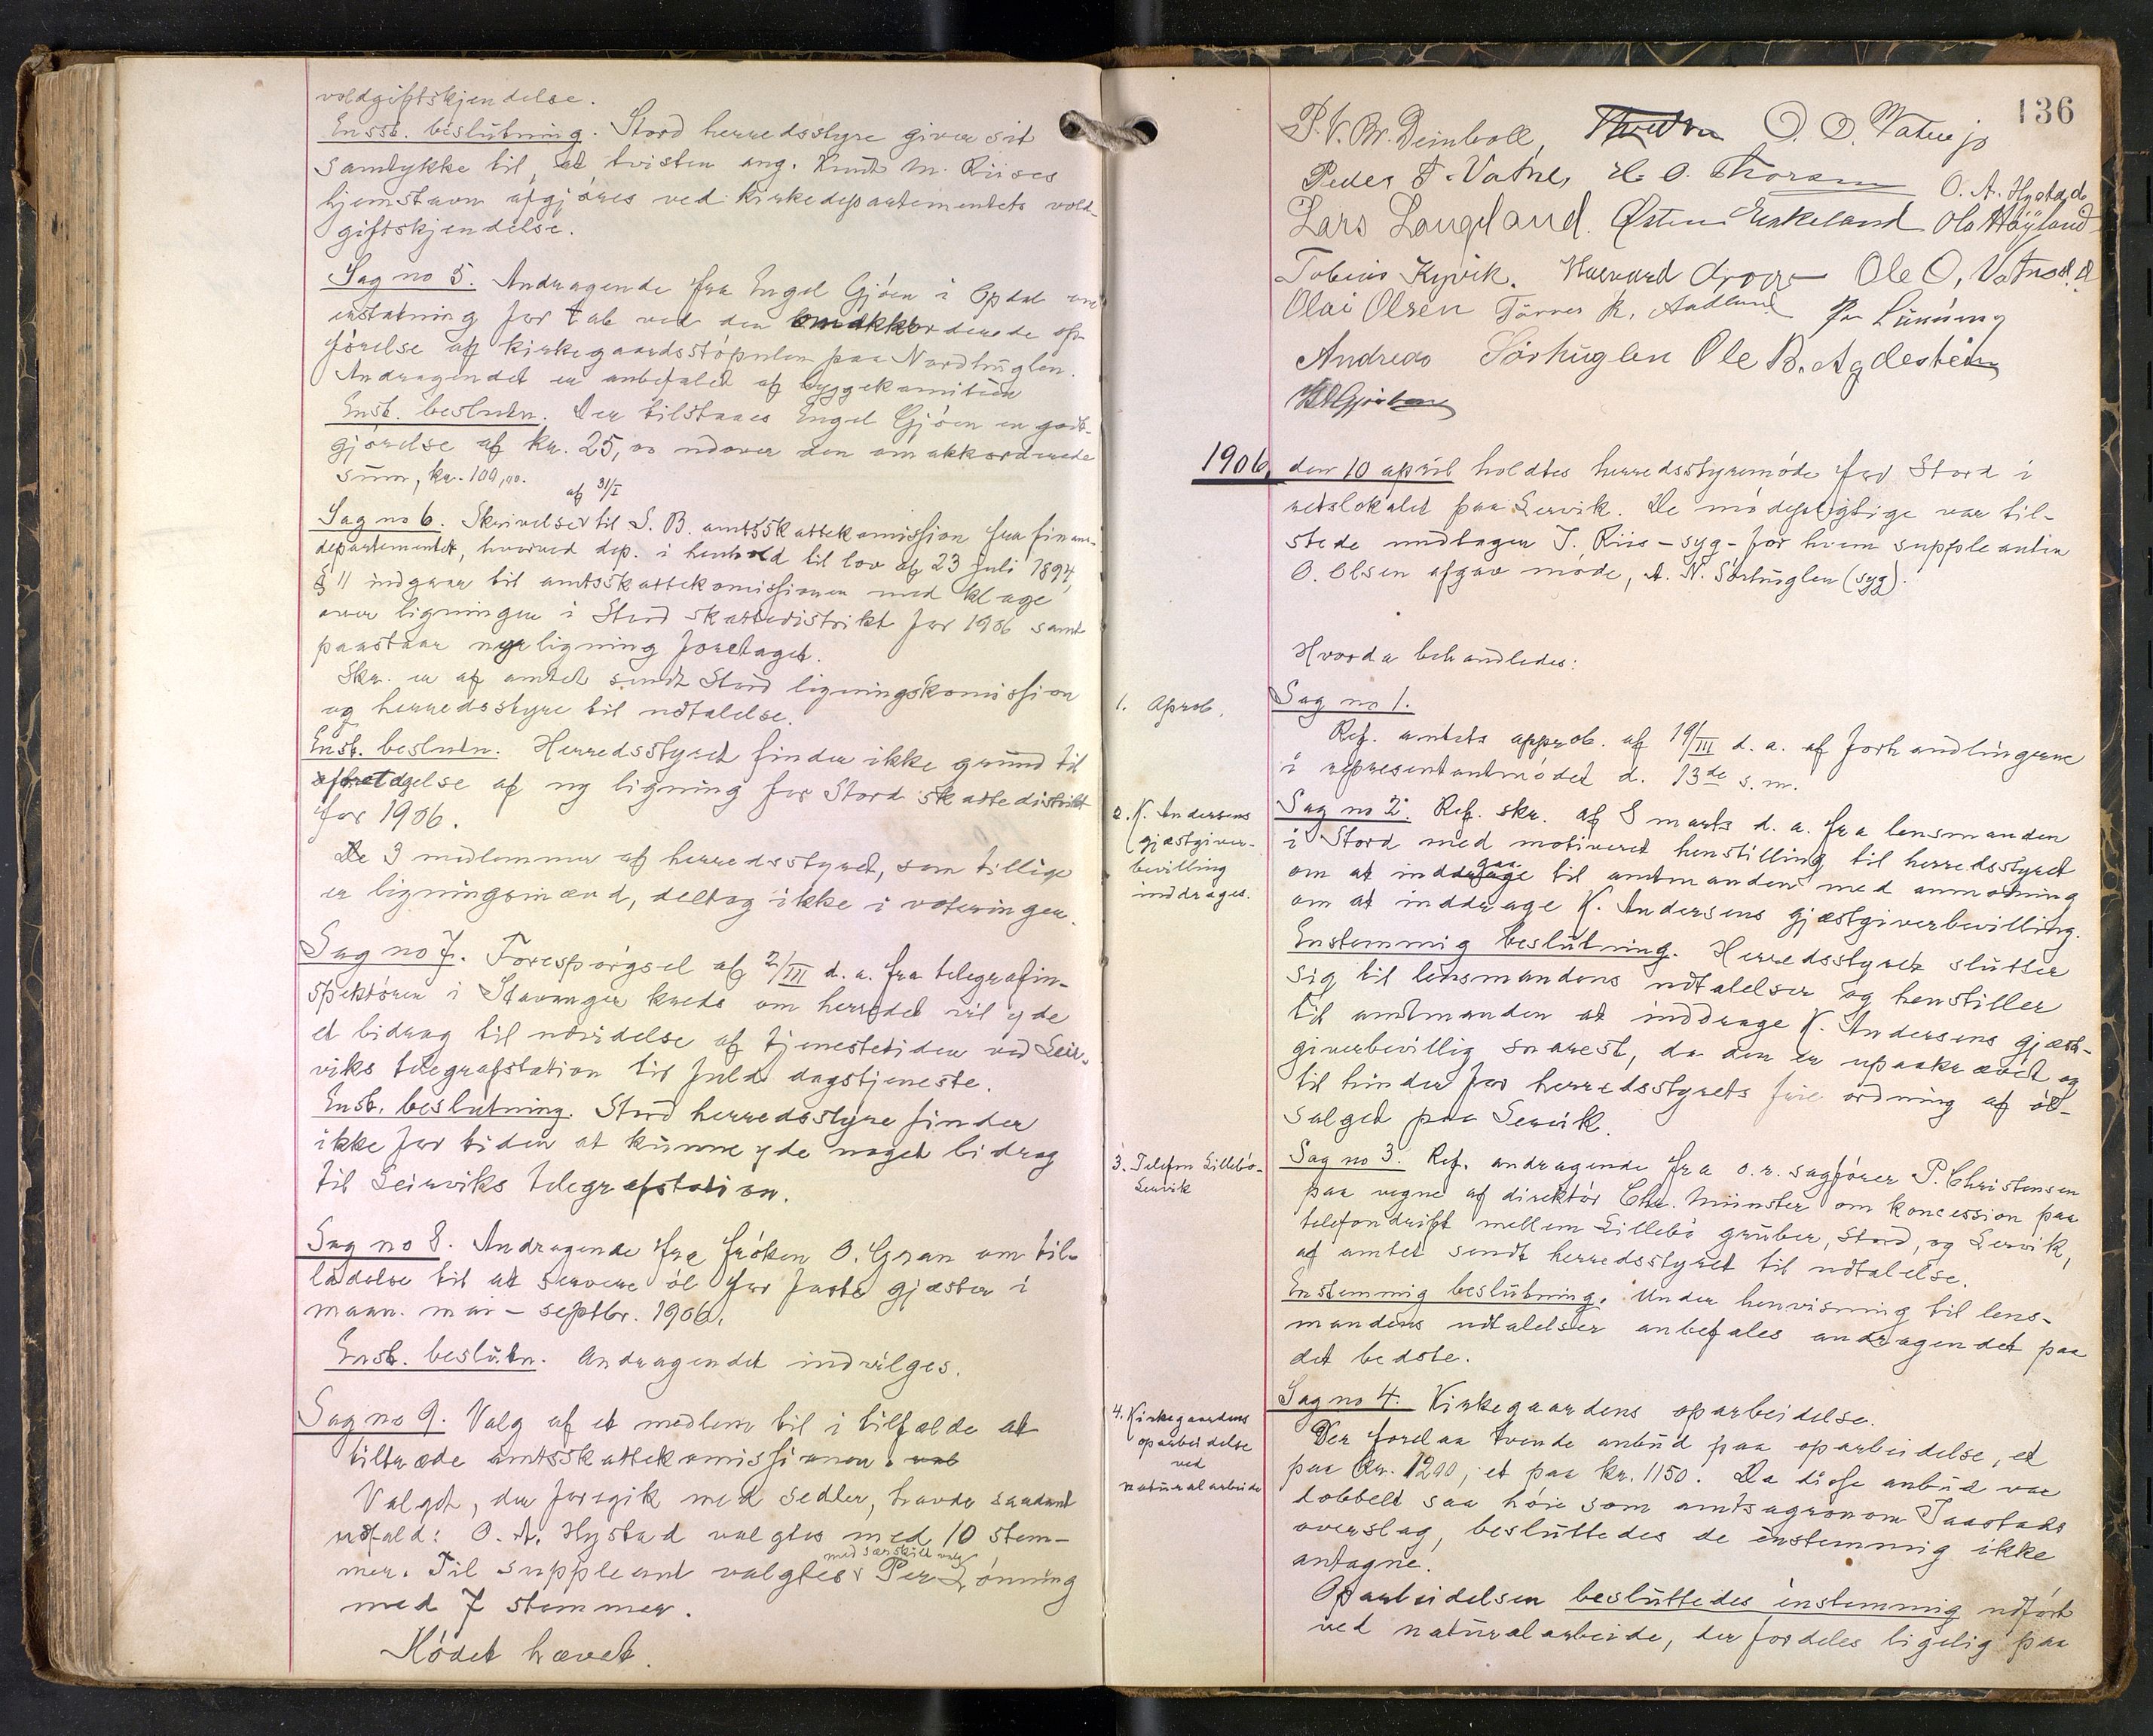 voldgiftskjendelse.
Ensst. beslutning. Stord herredsstyre giver sit
samtykke til, at tvisten ang. Knut M. Riises
hjemstavn afgjøres ved kirkedepartementets vold-
giftskjendelse.
Sag no 5. Andragende fra Engel Gjøen i Opdal om
erstatning for tab ved den omakkorderede op-
førelse af kirkegaardsstøpulen paa Nordhuglen.
Andragendet er anbefalet af byggekomiteen
Enst. beslutn. Der tilstaaes Engel Gjøen en godt-
gjørelse af kr. 25,00 udover den omakkorderede
sum, kr. 100,00.
af 31/I
Sag no 6. Skrivelser til S. B. amtsskattekomission fra finans-
departementet, hvorved dep. i henhold til lov af 23 juli 1894,
§ 11 indgaar til amtsskattekomissionen med klage
over ligningen i Stord skattedistrikt for 1906 samt
paastaar ny ligning foretaget.
Skr. er af amtet sendt Stord ligningskomission
og herredsstyre til udtalelse.
Enst. beslutn. Herredsstyret finder ikke grund til
foretagelse af ny ligning for Stord skattedistrikt
for 1906.
De 3 medlemmer af herredsstyret, som tillige
er ligningsmænd, deltog ikke i voteringen.
Sag no 7. Forespørgsel af 2/III d. a. fra telegrafin-
spektøren i Stavanger kreds om herredet vil yde
et bidrag til udvidelse af tjenestetiden ved Leir-
viks telegrafstation til fuld dagstjeneste.
Enst. beslutning. Stord herredsstyre finder
ikke for tiden at kunne yde noget bidrag
til Leirviks telegrafstation.
Sag no 8. Andragende fra frøken O. Gran om til-
ladelse til at servere øl for faste gjæster i
maan. mai - septbr. 1906.
Enst. beslutn. Andragendet indvilges.
Sag no 9. Valg af et medlem til i tilfælde at
tiltræde amtsskattekomissionen.
Valget, der foregik med sedler, havde saadant
udfald: O. A. Hystad valgtes med 10 stem-
med særskilt valg
mer. Til suppleant valgtes Per Lønning
med 7 stemmer.
Mødet hævet.
136
P. V. W. Deinboll, O. O. Vatne jo
Peder T. Vatne, H. O. Thorsen O. A. Hystad
Lars Langeland. Østen Eskeland Ole Høyland
Tobias Kyvik. Haavard Ole O. Vatne
Olai Olsen Tørres R. Aadland Per Lønning
Andreas Sørhuglen Ole B. Agdestein
1906, den 10 april holdtes herredsstyremøde for Stord i
retslokalet paa Lervik. De mødepligtige var til-
stede undtagen J. Riis - syg - for hvem suppleanten
O. Olsen afgav møde, A. N. Sørhuglen (syg).
Hvorda behandledes:
1. Aprob.
Sag no 1.
Ref. amtets approb. af 19/III d. a. af forhandlingerne
i representantmødet d. 13de s. m.
2. K. Andersens
gjæstgiver-
bevilling
inddrages.
Sag no 2. Ref. skr. af 8 marts d. a. fra lensmanden
i Stord med motiveret henstilling til herredsstyret
om at indgaa til amtmanden med anmodning
om at inddrage K. Andersens gjæstgiverbevilling.
Enstemmig beslutning. Herredsstyret slutter
sig til lensmandens udtalelser og henstiller
til amtmanden at inddrage K. Andersens gjæst-
giverbevillig snarest, da den er upaakrævet og
til hinder for herredsstyrets frie ordning af øl-
salget paa Lervik.
3. Telefon Lillebø-
Lervik
Sag no 3. Ref. andragende fra o. r. sagfører P. Christensen
paa vegne af direktør Chr. Münster om koncession paa
telefondrift mellem Lillebø gruber, Stord, og Lervik,
af amtet sendt herredsstyret til udtalelse.
Enstemmig beslutning. Under henvisning til lens-
mandens udtalelser anbefales andragendet paa
det bedste.
4. Kirkegaardens
oparbeidelse
ved
naturalarbeide
Sag no 4. Kirkegaardens oparbeidelse.
Der forelaa tvende anbud paa oparbeidelse, et
paa kr. 1200, et paa kr. 1150. Da disse anbud var
dobbelt saa høie som amtsagronom Taastads
overslag, besluttedes de enstemmig ikke
antagne.
Oparbeidelsen besluttedes enstemmig udført
ved naturalarbeide, der fordeles ligelig paa